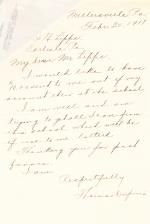 Millersville Pa
Febr 20, 1917
Lippo
Carlisle Pa
My dear Mr Lippo
I would like to have
10 cent to me out of my
account there at the school.
I am well and am
trying to
this school which will be
of use to me latter.
Thanking you for past
favors.
I am
Respectfully